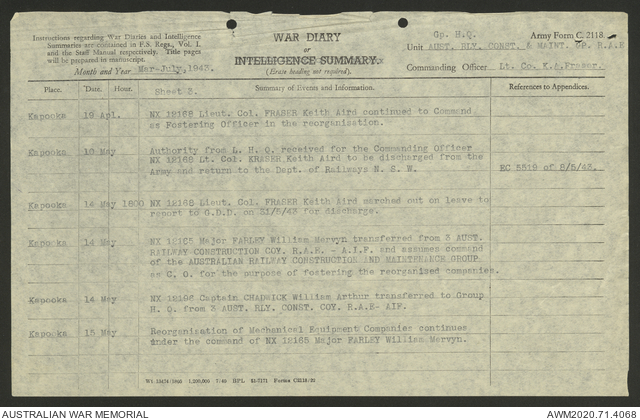 Instructions regarding War Diaries and Intelligence
Summaries are contained in F.S. Regs., Vol. I.
and the Staff Manual respectively. Title pages
will be prepared in manuscript.
Month and Year Mar-July,1943.
WAR DIARY
or
INTELLIGENCE SUMMARY.
(Erase heading not required).
Gp. H.Q. Army Form C. 2118.
Unit AUST. RLY. CONST. & MAINT. GP. R.A.E
Commanding Officer Lt. Co. K.A.Fraser.
Place. Date. Hour. Summary of Events and Information. References to Appendices.
Sheet 2.
Kapooka 19 Apl. NX 12168 Lieut. Col. FRASER Keith Aird continued to Command
as Fostering Officer in the reorganisation.
Kapooka 10 May Authority from L. H. Q. received for the Commanding Officer
NX 12168 Lt. Col. FRASER Keith Aird to be discharged from the
Army and return to the Dept. of Railways N. S. W. EC 5519 of 8/5/43.
Kapooka 14 May 1800 NX 12168 Lieut. Col. FRASER Keith Aird marched out on leave to
report to G.D.D. on 31/5/43 for discharge.
Kapooka 14 May NX 12165 Major FARLEY William Mervyn transferred from 3 AUST.
RAILWAY CONSTRUCTION COY. R.A.E. - A.I.F. and assumes command
of the AUSTRALIAN RAILWAY CONSTRUCTION AND MAINTENANCE GROUP
as C. O. for the purpose of fostering the reorganised companies.
Kapooka 14 May NX 12196 Captain CHADWICK William Arthur transferred to Group
H. Q. from 3 AUST. RLY. CONST. COY R.A.E- AIF.
Kapooka 15 May Reorganisation of Mechanical Equipment Companies continues
under the command of NX 12165 Major FARLEY William Mervyn.
1,200,000 7/40 Forms C2118/22
AUSTRALIAN WAR MEMORIAL AWM2020.71.4068